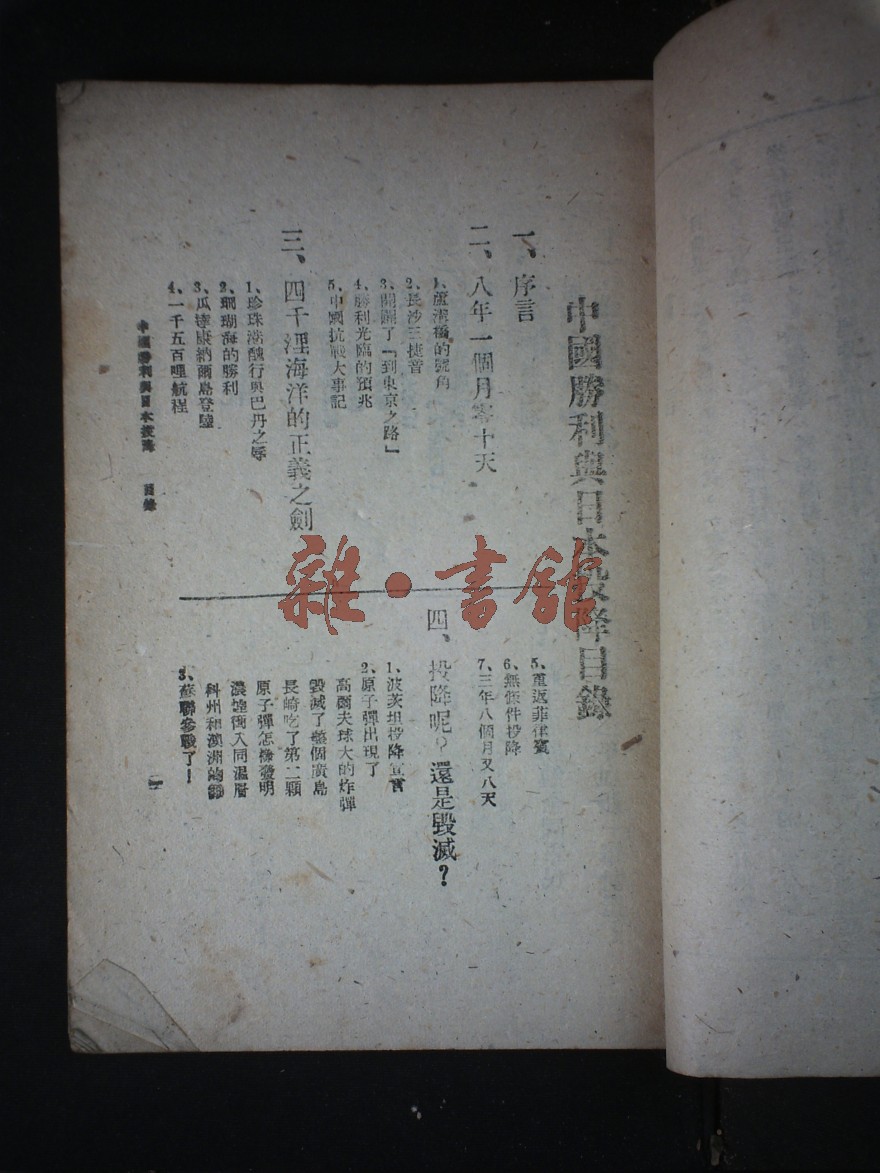 中國勝利與日本投降目錄
一、序言
二、八年一個月零十天
1、蘆溝橋的號角
2、長沙三捷音
3、開闢了「到東京之路」
4、勝利光臨的預兆
5、中國抗戰大事記
三、四千浬海洋的正義之劍
1、珍珠港醜行與巴丹之辱
2、珊瑚海的勝利
3、瓜達康納爾島登陸
4、一千五百哩航程
5、重返菲律賓
6、無條件投降
7、三年八個月又八天
四、投降呢？還是毀滅？
1、波茨坦投降宣言
2、原子彈出現了
高爾夫球大的炸彈
毀滅了整個廣島
長崎吃了第二顆
原子彈怎樣發明
濃煙衝入同溫層
科州和澳洲的鈾
3、蘇聯參戰了！
中國勝利與日本投降 目錄
一
雜·書館